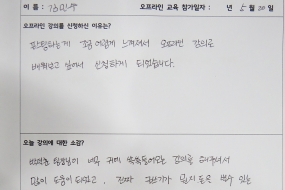 이 름 : 김민주 오프라인 교육 참가일자 : 년 5 월 20 일
오프라인 강의를 신청하신 이유는?
조금 어렵게 느껴져서 오프라인 강의로
배워보고 싶어서 신청하게 되었습니다.
오늘 강의에 대한 소감?
너무 귀에 쏙쏙들어오는 강의를 해주셔서
많이 도움이 되었고, 진짜